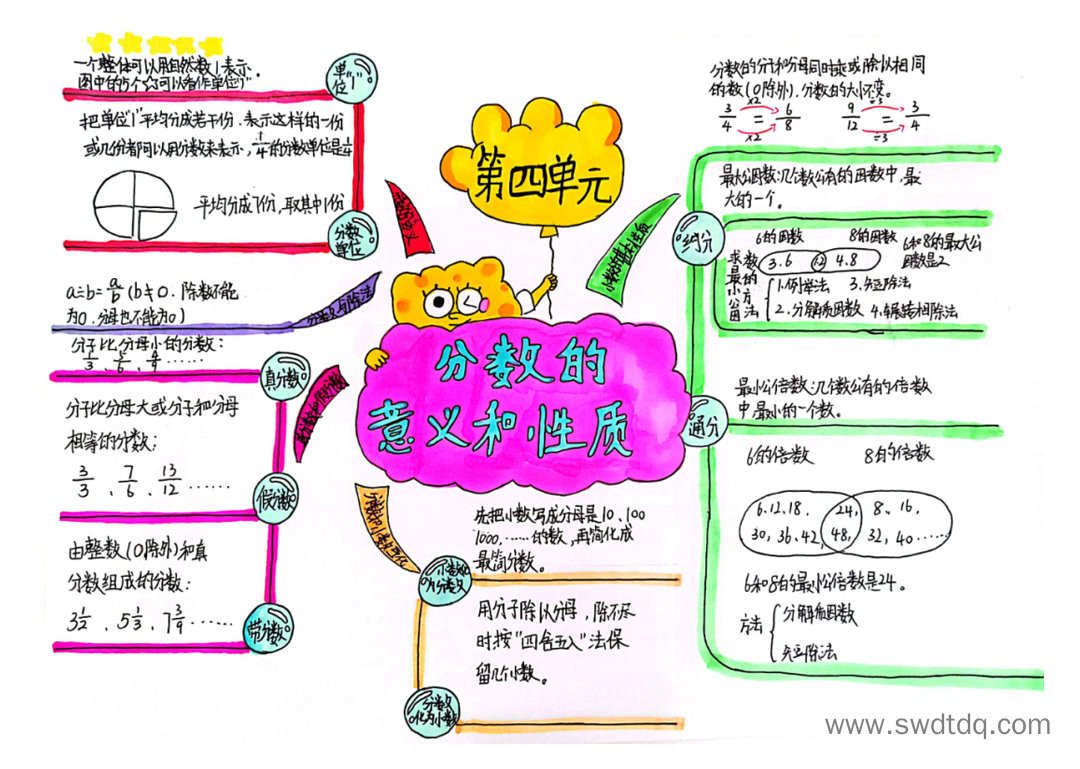 第四单元
分数的
意义和性质
一个整体可以用自然数1表示。
图中的5个☆可以看作单位"1"
单
位"1"
把单位"1"平均分成若干份,表示这样的一份
或几份都可以用分数来表示,1/4的分数单位是1/4
平均分成4份,取其中1份
分数
单位
分数与除法
a÷b=a/b(b≠0,除数不能
为0,分母也不能为0)
分子比分母小的分数:
1/3、5/6、4/9……
真分数
分子比分母大或分子和分母
相等的分数:
3/3、7/6、13/12……
假分数
由整数(0除外)和真
分数组成的分数:
3 1/2、5 1/3、7 3/9……
带分数
先把小数写成分母是10、100
1000,……的数,再简化成
最简分数。
小数化
为分数
用分子除以分母,除不尽
时按"四舍五入"法保
留几个小数。
分数
化为小数
分数的分子和分母同时乘或除以相同
的数(0除外),分数的大小不变。
×2 ÷3
3/4=6/8 9/12=3/4
×2 ÷3
最大公因数:几个数公有的因数中,最
大的一个。
约分
6的因数 8的因数
3.6 1,2 4.8
6和8的最大公
因数是2
1.例举法 3.短除法
2.分解质因数 4.辗转相除法
最小公倍数:几个数公有的倍数
中,最小的一个数。
通分
6的倍数 8的倍数
6、12、18、 24, 8、16、
30、36、42, 48, 32、40……
6和8的最小公倍数是24。
方法
分解质因数
短除法
www.swdtdq.com